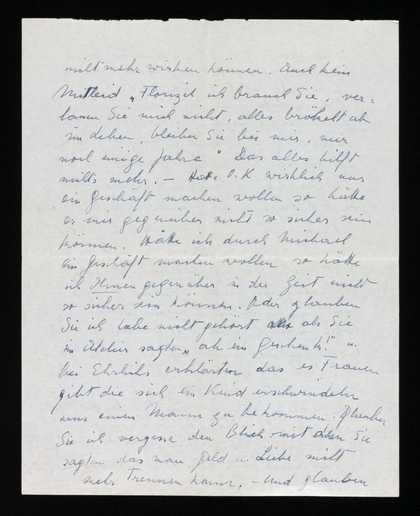 nicht mehr wirken können. Auch kein
Mitleid „Florizel ich brauch Sie, ver-
lassen Sie mich nicht, alles bröckelt ab
im Leben, bleiben Sie bei mir, nur
noch einige Jahre" Das alles hilft
nichts mehr. – Hätte O.K wirklich nur
ein Geschäft machen wollen so hätte
er mir gegenüber nicht so sicher sein
können. Hätte ich durch Michael
ein Geschäft machen wollen so hätte
ich Ihnen gegenüber in der Zeit nicht
so sicher sein können. Oder glauben
Sie ich habe nicht gehört als Sie
im Atelier sagten „ah ein Geschenk!" u.
bei Ehrlichs erklärten das es Frauen
gibt die sich ein Kind erschwindeln
um einen Mann zu bekommen. Glauben
Sie ich vergesse den Blick mit dem Sie
sagten das man Geld u. Liebe nicht
mehr trennen kann. – Und glauben